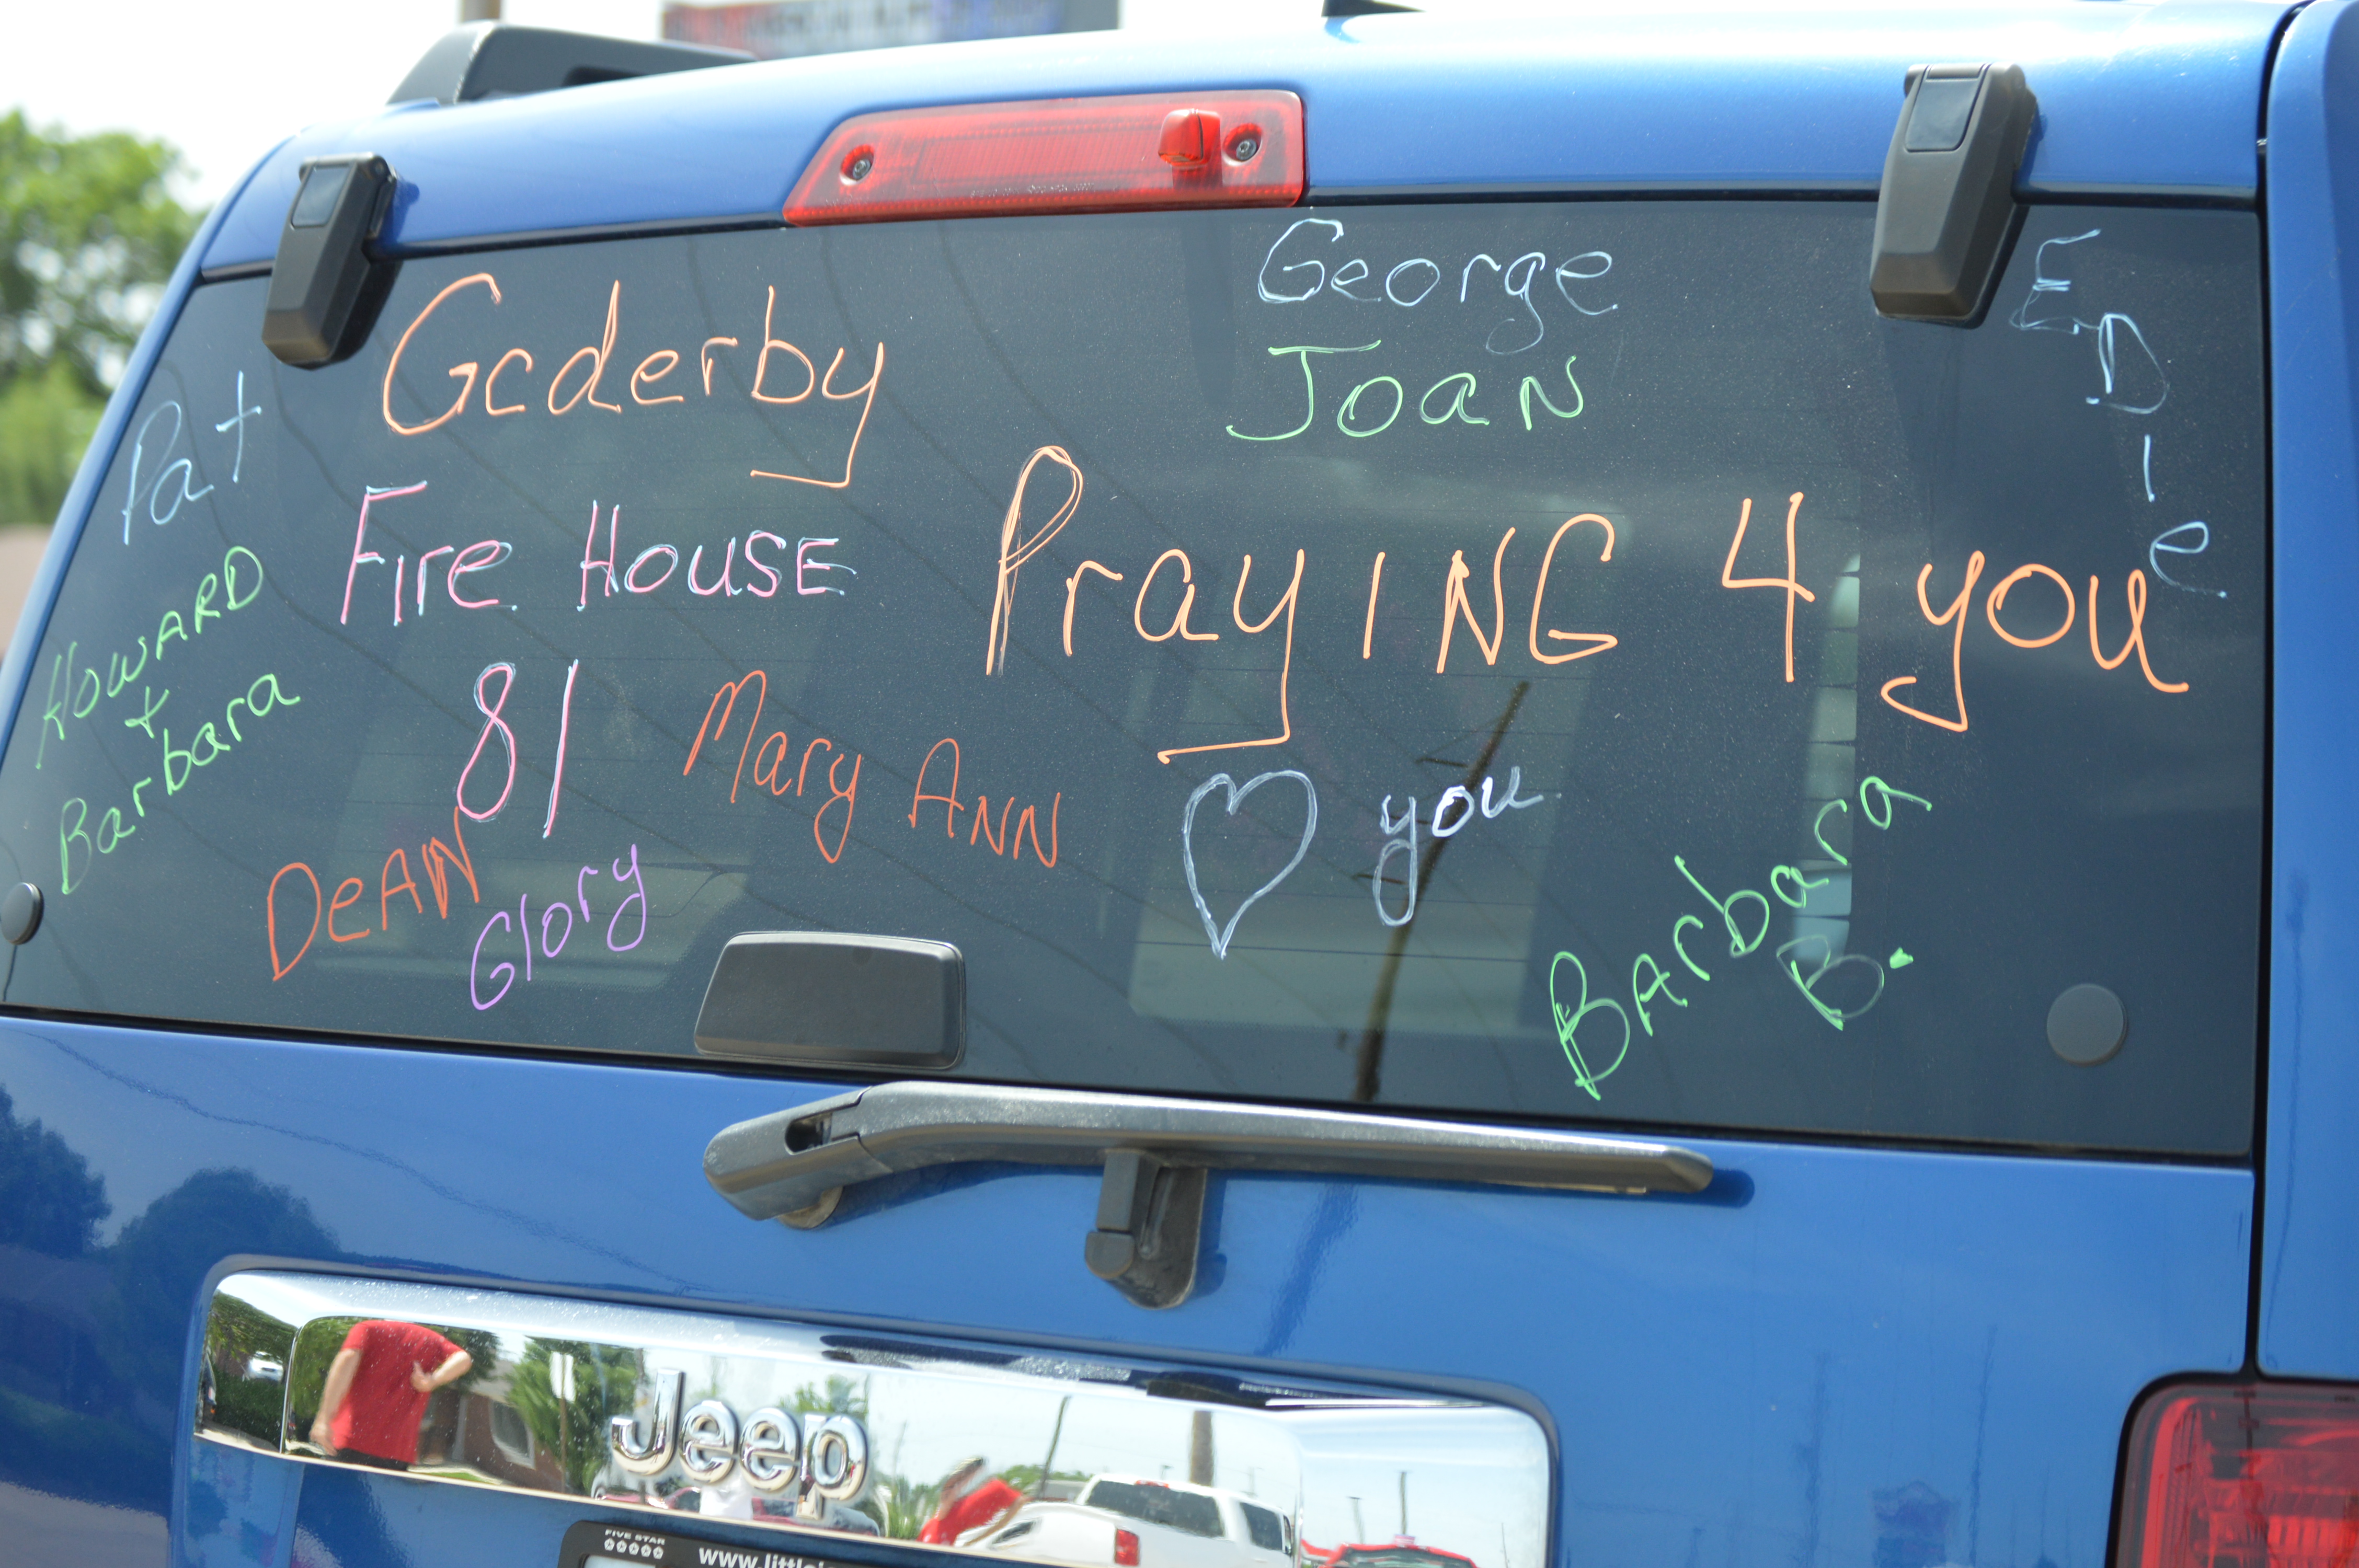 George
Joan
EDie
Gcderby
Pat
Fire House
81
Praying 4 you
Howard
+
Barbara
Mary Ann
♡ you
Dean
Glory
Barbara
B.
Jeep
FIVE STAR